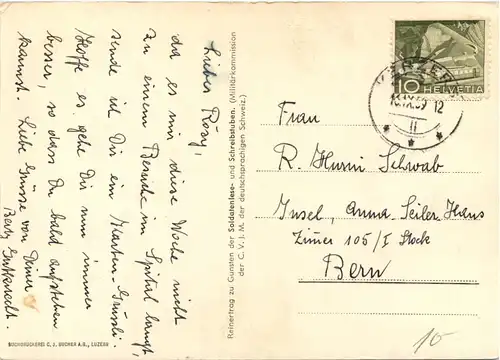 Liebes Rösy,
da es mir diese Woche nicht
zu einem Besuche im Spital langt,
sende ich Dir ein Karten-Grüssli.
Hoffe es gehe Dir nun immer
besser, so dass Du bald aufstehen
kannst. Liebe Grüsse von Deiner
Berty Gutknecht.
Reinertrag zu Gunsten der Soldatenlese- und Schreibstuben. (Militärkommission
der C. V. J. M. der deutschsprachigen Schweiz.)
BUCHDRUCKEREI C. J. BUCHER A.G., LUZERN
10 HELVETIA
12
Frau
R. Hurni Schwab
Insel, Anna Seiler Haus
Zimmer 105/I Stock
Bern
10